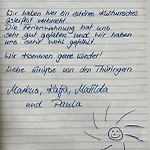 Wir haben hier ein schönes kulturreiches
Osterfest verbracht.
Die Ferienwohnung hat uns
sehr gut gefallen und wir haben
uns sehr wohl gefühlt.
Wir kommen gerne wieder!
Liebe Grüße von den Thüringern
Markus, Katja, Matilda
und Paula